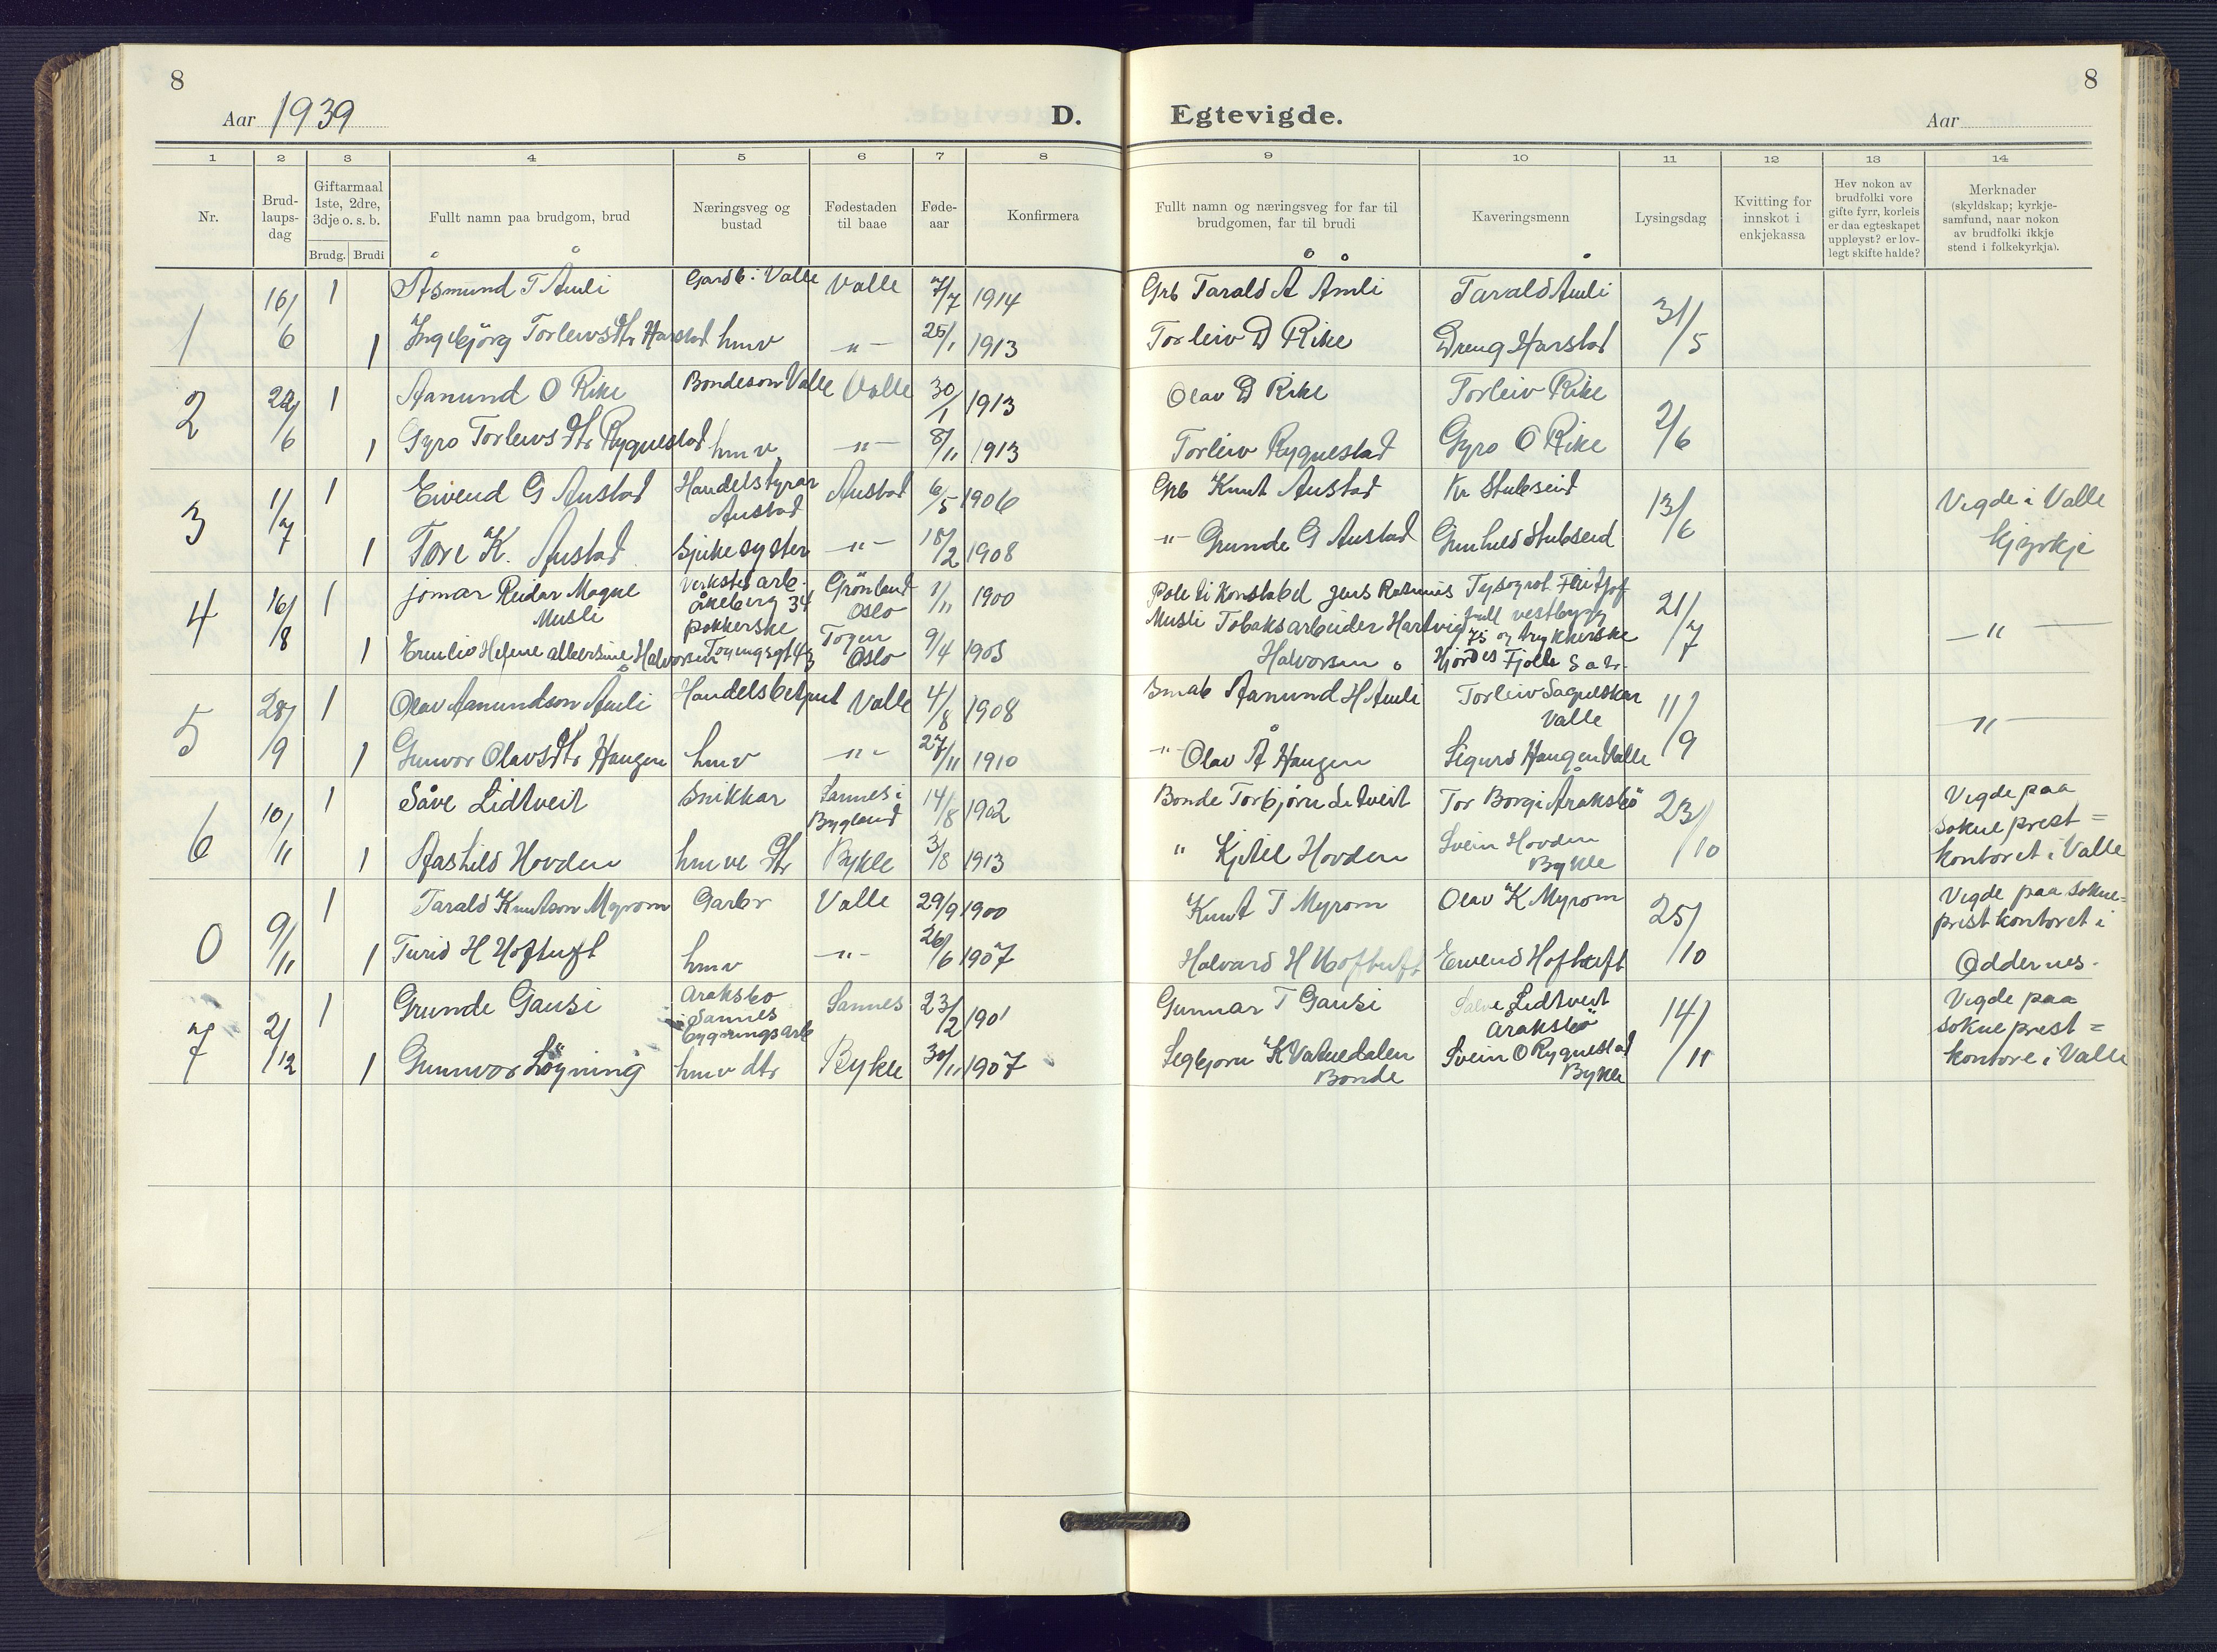 8
Aar 1939
D.
Egtevigde.
8
Aar
1 2 3 4 5 6 7 8 9 10 11 12 13 14
Nr.
Brud-
laups-
dag
Giftarmaal
1ste, 2dre,
3dje o. s. b.
Brudg. Brudi
Fullt namn paa brudgom, brud
Næringsveg og
bustad
Fødestaden
til baae
Føde-
aar
Konfirmera
Fullt namn og næringsveg for far til
brudgomen, far til brudi
Kaveringsmenn
Lysingsdag
Kvitting for
innskot i
enkjekassa
Hev nokon av
brudfolki vore
gifte fyrr, korleis
er daa egteskapet
uppløyst? er lov-
legt skifte halde?
Merknader
(skyldskap; kyrkje-
samfund, naar nokon
av brudfolki ikkje
stend i folkekyrkja).
1 16/6 1 Åsmund T Åmli Gardb i Valle Valle 7/7 1914 Grb Tarald Å Åmli Tarald Åmli 31/5
1 Ingebjörg Torleivsdtr Harstad hmv -"- 25/1 1913 Torleiv D Rike Dreng Harstad
2 22/6 1 Aanund O Rike Bondeson Valle Valle 30/1 1913 Olav D Rike Torleiv Rike 2/6
1 Gyro Torleivsdtr Rygnestad hmv -"- 8/11 1913 Torleiv Rygnestad Gyro O Rike
3 1/7 1 Eivend G Austad Handelstyrar Austad 6/5 1906 Grb Knut Austad Kr Stubseid 13/6 Vigde i Valle
Austad
1 Tore K. Austad Sjukesyster -"- 18/2 1908 -"- Grunde G Austad Gunhild Stubseid kjyrkje
4 16/8 1 Jomar Reidar Magne Verksted arb. Grönland 1/11 1900 Politi Konstabel Jens Rasmus Typograf Fritjof 21/7 -"-
Musli åkeberg 34 Oslo Musli Tobaksarbeider Hartvig
pakkerske
1 Emilie Helene Albertine Halvorsen Tøyengt 43 Tøyen 9/4 1905 Halvorsen Hjördis Fjelle
Oslo
5 28/9 1 Olav Aanundson Åmli Handelsbetjent Valle 4/8 1908 Smab Aanund H Åmli Torleiv Sagneskar 11/9 -"-
Valle
1 Gunvor Olavsdtr Haugen hmv -"- 27/11 1910 -"- Olav Å Haugen Sigurd Haugen Valle
6 10/11 1 Såve Lidtveit Snikkar Sannes i 14/8 1902 Bonde Torbjørn Litveit Tor Borgi Åraksbö 23/10 Vigde paa
Bygland sokneprest=
1 Aashild Hovden hmve dtr Bykle 3/8 1913 " Kjetil Hovden Svein Hovden kontoret i Valle
Bykle
0 9/11 1 Tarald Knutson Myrom Garbr Valle 29/9 1900 Knut T Myrom Olav K Myrom 25/10 Vigde paa sokne=
prestkontoret i
1 Turid H Hoftuft hmv -"- 26/6 1907 Halvard H Hoftuft Eivend Hoftuft Oddernes.
7 2/12 1 Grunde Gausi Araksbo Sannes 23/2 1901 Gunnar T Gausi Salve Lidtveit 14/11 Vigde paa
i Sannes Araksbö sokneprest=
bygningsarb
1 Gunnvor Löyning hmv dtr Bykle 30/11 1907 Segbjorn K Vatnedalen Svein O Rygnestad kontore i Valle
Bonde Bykle